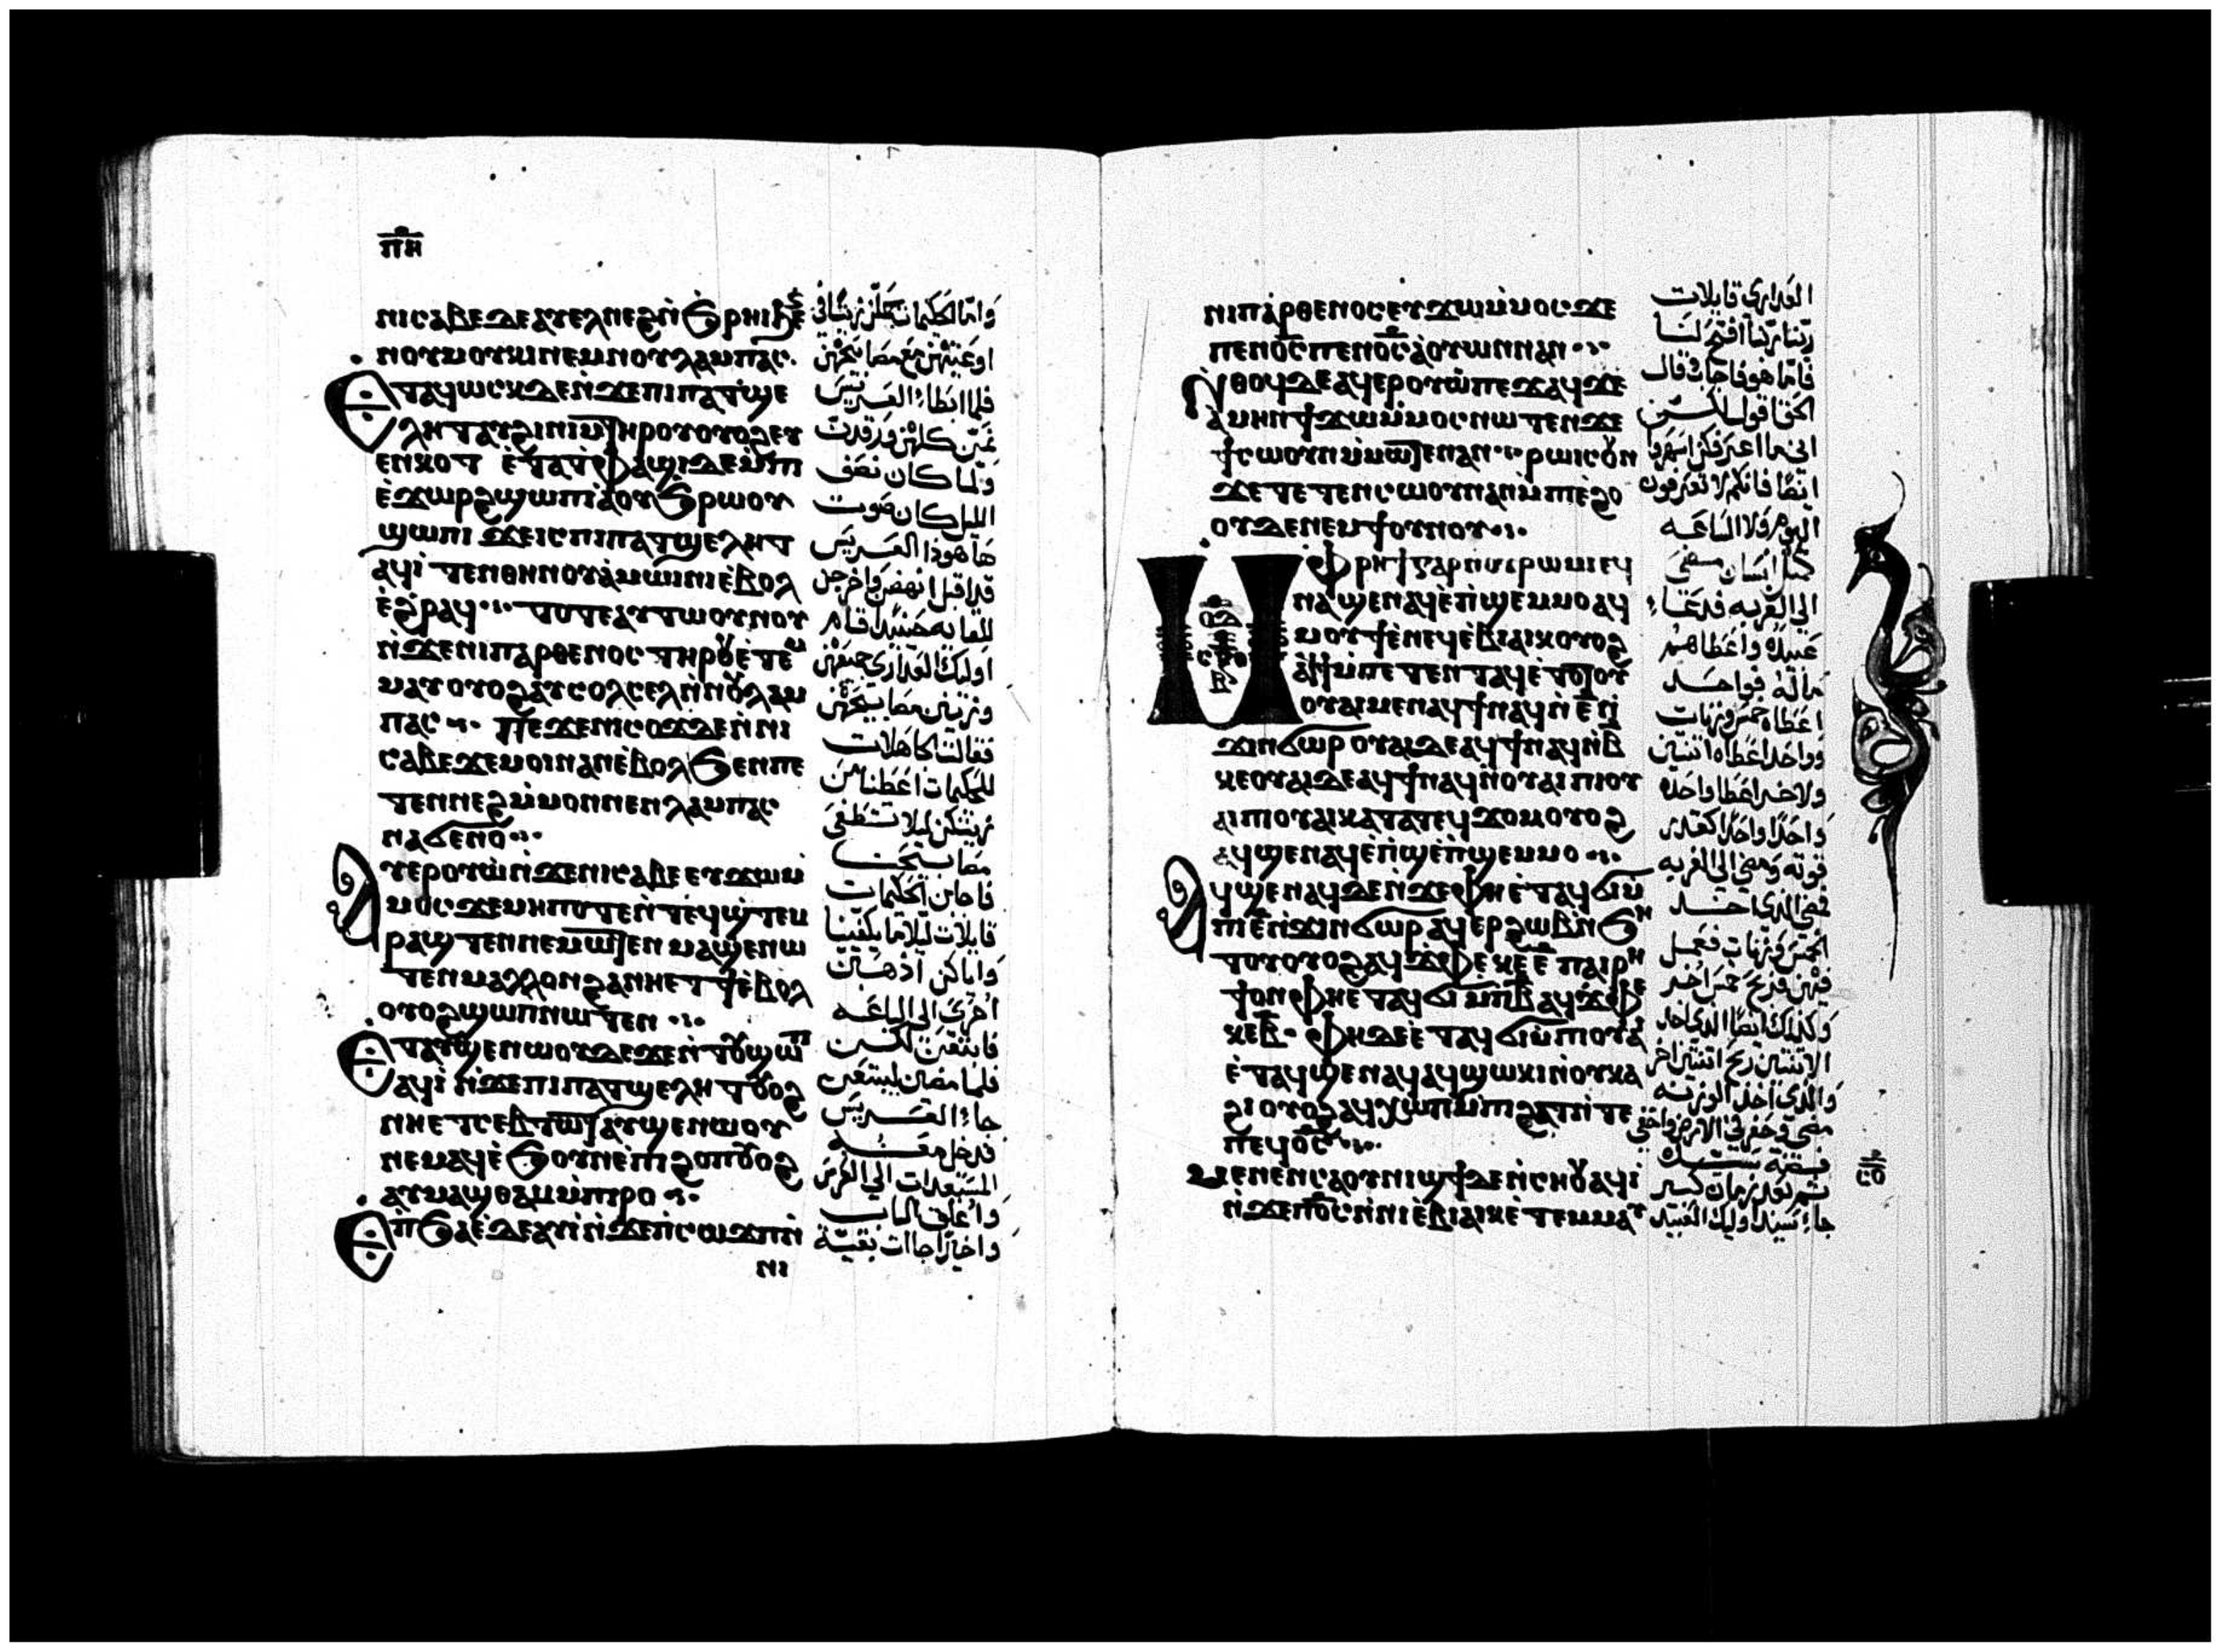 ⲡⲏ
ⲛⲓⲥⲁⲃⲉⲇⲉⲁⲩⲉⲗⲛⲉϩⲛ̀ϧⲣⲏⲓϧⲉ
ⲛⲟⲩⲙⲟⲩⲕⲓⲛⲉⲙⲛⲟⲩⲗⲁⲙⲡⲁⲥ·
Ⲉⲧⲁϥⲱⲥⲕⲇⲉⲛ̀ϫⲉⲡⲓⲡⲁⲧϣⲉ
ⲗⲏⲧⲁⲩϩⲓⲛⲓⲙⲧⲏⲣⲟⲩⲟⲩⲟϩⲉⲩ
ⲉⲛⲕⲟⲧ ⲉ̀ⲧⲁⲧⲫⲁϣⲓⲇⲉⲙ̀ⲡⲓ
ⲉ̀ϫⲱⲣϩϣⲱⲡⲓⲁⲟⲩϧⲣⲱⲟⲩ
ϣⲱⲡⲓ ϫⲉⲓⲥⲡⲓⲡⲁⲧϣⲉⲗⲏⲧ
ⲁϥⲓ̀ ⲧⲉⲛⲑⲏⲛⲟⲩⲁ̀ⲙⲱⲓⲛⲓⲉ̀ⲃⲟⲗ
ⲉ̀ϩⲣⲁϥ ⲧⲟⲧⲉⲁⲩⲧⲱⲟⲩⲛⲟⲩ
ⲛ̀ϫⲉⲛⲓⲡⲁⲣⲑⲉⲛⲟⲥ ⲧⲏⲣⲟⲩⲉ̀ⲧⲉⲙ
ⲙⲁⲩⲟⲩⲟϩⲁⲩⲥⲟⲗⲥⲉⲗⲛ̀ⲛⲟⲩⲗⲁⲙ
ⲡⲁⲥ Ⲡⲉϫⲉⲛⲓⲥⲟϫⲇⲉⲛ̀ⲛⲓ
ⲥⲁⲃⲉϫⲉⲙⲟⲓⲛⲁⲛⲉ̀ⲃⲟⲗϧⲉⲛⲡⲉ
ⲧⲉⲛⲛⲉϩⲙ̀ⲙⲟⲛⲛⲉⲛⲗⲁⲙⲡⲁⲥ
ⲛⲁϭⲉⲛⲟ
Ⲁⲩⲉⲣⲟⲩⲱ̀ⲛ̀ϫⲉⲛⲓⲥⲁⲃⲉⲉⲩϫⲱⲙ̀
ⲙⲟⲥϫⲉⲙⲏⲡⲟⲧⲉⲛ̀ⲧⲉϥϣ̀ⲧⲉⲙ
ⲣⲁϣ ⲧⲉⲛⲛⲉⲙⲱⲧⲉⲛ ⲙⲁϣⲉⲛⲱ
ⲧⲉⲛⲙⲁⲗⲗⲟⲛϩⲁⲛⲏⲉⲧϯⲉ̀ⲃⲟⲗ
ⲟⲩⲟϩϣⲱⲡⲛⲱⲧⲉⲛ
Ⲉⲧⲁⲩϣⲉⲛⲱⲟⲩⲇⲉϫⲉⲛ̀ⲧⲟⲩϣⲱⲡ
ⲁϥⲓ̀ ⲛ̀ϫⲉⲡⲓⲡⲁⲧϣⲉⲗⲏⲧⲟⲩⲟϩ
ⲛⲏⲉⲧⲥⲉⲃⲧⲱⲧⲁⲩϣⲉⲛⲱⲟⲩ
ⲛⲉⲙⲁϥⲉ̀ϧⲟⲩⲛⲉ̀ⲡⲓϩⲟⲡⲟⲩⲟϩ
ⲁⲩⲙⲁϣⲑⲁⲙⲙ̀ⲡⲓⲣⲟ
Ⲉⲡ̀ϧⲁⲉ̀ⲇⲉⲁⲩⲓ̀ⲛ̀ϫⲉⲡ̀ⲥⲱϫⲡⲛ̀
ⲛⲓ
واما الحكيمات
اوعيتهن مع مصابيحهن
فلما ابطاء العريس
كلهن ورقدت
ولما كان نصف
الليل كان صوت
هاهوذا العريس
قد اقبل انهضن واخرجن
للقايه حينيذ قام
اوليك العذارى جميعهن
وزين مصابيحهن
فقالت الجاهلات
للحكيمات اعطننا من
زيتكن ليلا تنطفي
مصابيحنا
فاجابن الحكيمات
قايلات ليلا ما يكفينا
واياكن اذهبن
احرى الى الباعه
فابتعن لكن
فلما مضين ليبتعن
جاء العريس
فدخل معه
المستعدات الى العرس
واغلق الباب
واخيرا جاات بقية
ⲛⲓⲡⲁⲣⲑⲉⲛⲟⲥⲉⲩϫⲱⲙ̀ⲙⲟⲥϫⲉ
ⲡⲉⲛⲟ̅ⲥ̅ⲡⲉⲛⲟ̅ⲥ̅ⲁ̀ⲟⲩⲱⲛⲛⲁⲛ
Ⲛⲑⲟϥⲇⲉⲁϥⲉⲣⲟⲩⲱ̀ⲡⲉϫⲁϥϫⲉ
ⲁⲙⲏⲛϯϫⲱⲙ̀ⲙⲟⲥⲛⲱⲧⲉⲛϫⲉ
ϯⲥⲱⲟⲩⲛⲙ̀ⲙⲱⲧⲉⲛⲁⲛ ⲣⲱⲓⲥⲟⲩⲛ
ϫⲉⲧⲉⲧⲉⲛⲥⲱⲟⲩⲛⲁⲛⲙ̀ⲡⲓⲉ̀ϩⲟ
ⲟⲩⲇⲉⲛⲉⲙϯⲟⲩⲛⲟⲩ
Ⲙⲫⲣⲏϯⲅⲁⲣⲛ̀ⲟⲩⲣⲱⲙⲓⲉϥ
ⲛⲁϣⲉⲛⲁϥⲉ̀ⲡ̀ϣⲉⲙⲙⲟⲁϥ
ⲙⲟⲩϯⲉ̀ⲛⲉϥⲉ̀ⲃⲓⲁⲓⲕⲟⲩⲟϩ
ⲁϥϯⲙ̀ⲡⲉⲧⲉⲛⲧⲁϥⲉ̀ⲧⲟⲧⲟⲩ
ⲟⲩⲁⲓⲙⲉⲛⲁϥϯⲛⲁϥⲛ̀ⲉ̅ⲛ̀
ϫⲓⲛϭⲱⲣⲟⲩⲁⲓⲇⲉⲁϥϯⲛⲁϥⲛ̀ⲃ̅
ⲕⲉⲟⲩⲁⲓⲇⲉⲁϥϯⲛⲁϥⲛ̀ⲟⲩⲁⲓⲡⲓⲟⲩ
ⲁⲓⲡⲓⲟⲩⲁⲓⲕⲁⲧⲁⲧⲉϥϫⲟⲙⲟⲩⲟϩ
ⲁϥϣⲉⲛⲁϥⲉ̀ⲡ̀ϣⲉⲙⲙⲟ
Ⲁϥϣⲉⲛⲁϥⲇⲉⲛ̀ϫⲉⲫⲏⲉ̀ⲧⲁϥϭⲓⲙ̀
ⲡⲓⲉ̅ⲛ̀ϫⲓⲛϭⲱⲣⲁϥⲉⲣϩⲱⲃⲛ̀ϧⲏ
ⲧⲟⲩⲟⲩⲟϩⲁϥϫⲫⲉⲕⲉⲉ̅ ⲡⲁⲓⲣⲏ
ϯⲟⲛⲫⲏⲉⲧⲁϥϭⲓⲙⲡⲓⲃ̅ⲁϥϫⲫⲉ
ⲕⲉⲃ̅· ⲫⲏⲇⲉⲉ̀ⲧⲁϥϭⲓⲙ̀ⲡⲓⲟⲩⲁⲓ
ⲉ̀ⲧⲁϥϣⲉⲛⲁϥⲁϥϣⲱⲕⲓⲛ̀ⲟⲩⲕⲁ
ϩⲓⲟⲩⲟϩⲁϥⲭⲱⲡⲙ̀ⲡⲓϩⲁⲧⲛ̀ⲧⲉ
ⲡⲉϥⲟ̅ⲥ̅
Ⲙⲉⲛⲉⲛⲥⲁⲟⲩⲛⲓϣϯⲇⲉⲛ̀ⲥⲏⲟⲩⲁϥⲓ̀
ⲛ̀ϫⲉⲡⲟ̅ⲥ̅ⲛ̀ⲛⲓⲉ̀ⲃⲓⲁⲓⲕⲉ̀ⲧⲉⲙⲙⲁⲩ
العذارى قايلات
ربنا ربنا افتح لنا
فاما هو فاجاب قال
الحق اقول لكن
اني ما اعرفكن اسهروا
ايضا فانكم لا تعرفون
اليوم ولا الساعه
انسان
الى الغربه فدعا
عبيده واعطاهم
ماله فواحد
اعطاه خمس وزنات
وواحدا اعطاه اثنين
ولاخر اعطا واحده
واحدا واحدا كقدر
قوته ومضى الى الغربه
فمضى الذي اخذ
الخمس وزنات فعمل
فيهن فربح خمس اخر
وكذلك ايضا الذي اخذ
الاثنتين ربح اثنتين اخر
والذي اخذ الوزنه
مضى وحفر في الارض واخفى
فضة سيده
ثم بعد زمان كبير
جاء سيد اوليك العبيد